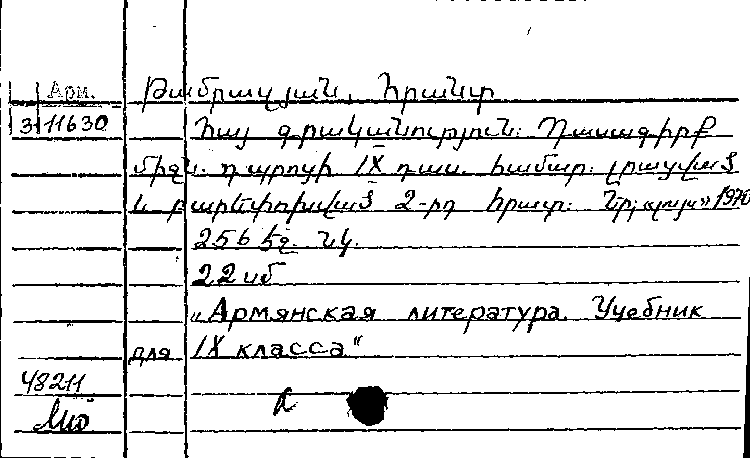 Арм. Թամրազյան, Հրանտ
3 11630 Հայ գրականություն: Դասագիրք
միջն. դպրոցի IX դաս. համար. լրացված
և բարեփոխված 2-րդ հրատ. Եր; «լույս» 1970
256 էջ. նկ.
22 սմ
„Армянская литература. Учебник
для IX класса"
48211